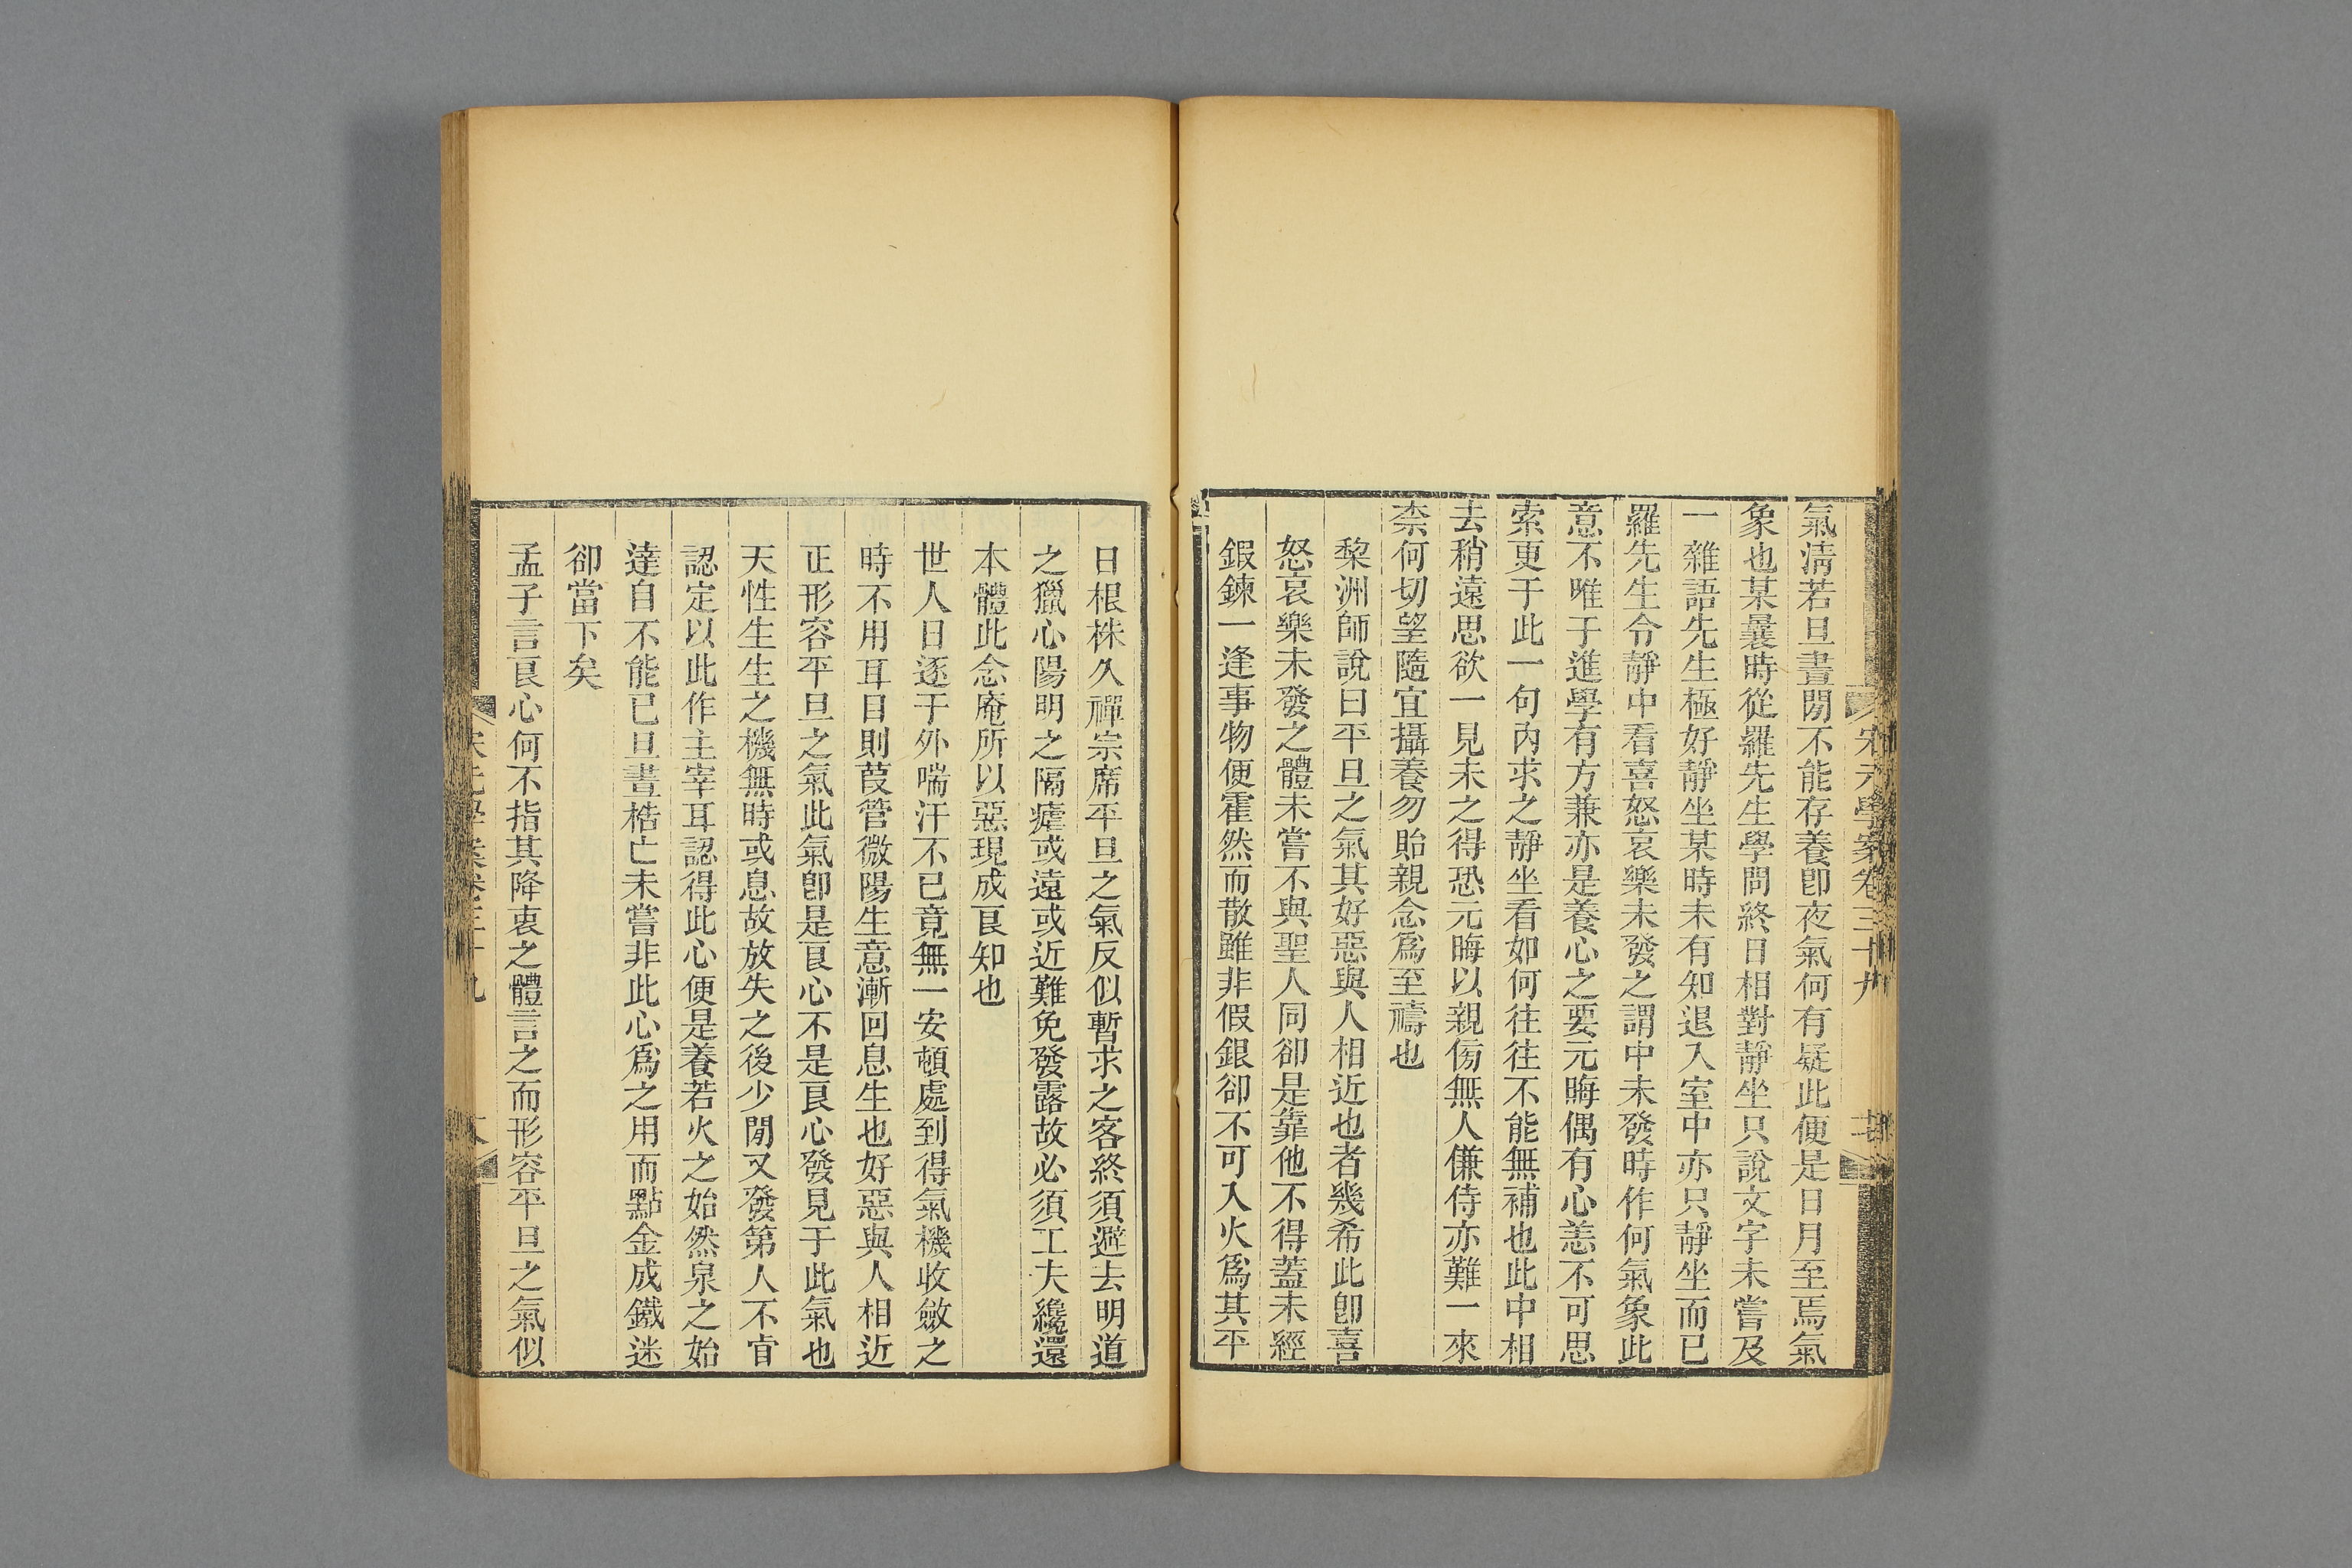 氣淸若旦晝閒不能存養卽夜氣何有疑此便是日月至焉氣
象也某曩時從羅先生學問終日相對靜坐只說文字未嘗及
一雜語先生極好靜坐某時未有知退入室中亦只靜坐而已
羅先生令靜中看喜怒哀樂未發之謂中未發時作何氣象此
意不唯于進學有方兼亦是養心之要元晦偶有心恙不可思
索更于此一句內求之靜坐看如何往往不能無補也此中相
去稍遠思欲一見未之得恐元晦以親傍無人傔侍亦難一來
柰何切望隨宜攝養勿貽親念爲至禱也
黎洲師說曰平旦之氣其好惡與人相近也者幾希此卽喜
怒哀樂未發之體未嘗不與聖人同卻是靠他不得蓋未經
鍜鍊一逢事物便霍然而散雖非假銀卻不可入火爲其平
日根株久禪宗席平旦之氣反似暫求之客終須避去明道
之獵心陽明之隔瘧或遠或近難免發露故必須工夫纔還
本體此念庵所以惡現成良知也
世人日逐于外喘汗不已竟無一安頓處到得氣機收斂之
時不用耳目則葭管微陽生意漸回息生也好惡與人相近
正形容平旦之氣此氣卽是良心不是良心發見于此氣也
天性生生之機無時或息故放失之後少閒又發第人不肯
認定以此作主宰耳認得此心便是養若火之始然泉之始
達自不能已旦晝梏亡未嘗非此心爲之用而點金成鐵迷
卻當下矣
孟子言良心何不指其降衷之體言之而形容平旦之氣似
宋元學案卷三十九